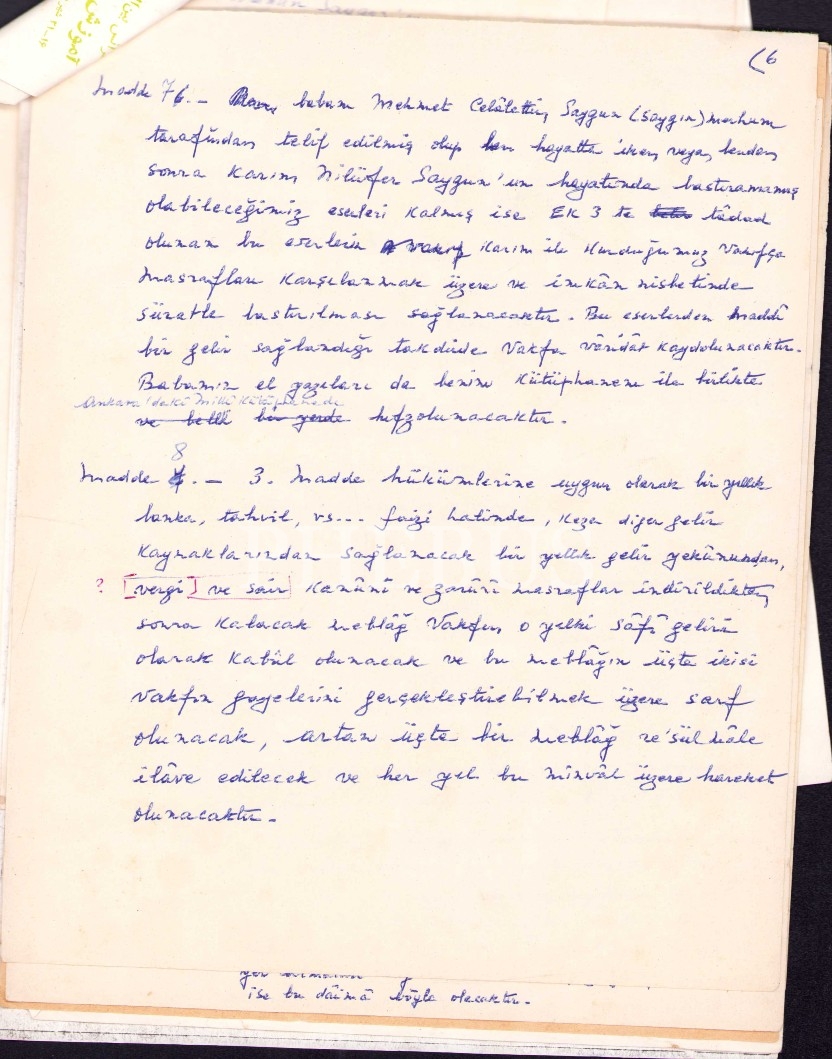 (6
Madde 7
babam Mehmet Celâlettin Saygun (Saygın) merhum
tarafından telif edilmiş olup ben hayatta iken veya benden
sonra Karım Nilüfer Saygun'un hayatında bastıramamış
olabileceğimiz eserleri kalmış ise EK 3 te tâdad
olunan bu eserlerin vakıf Karım ile Kurduğumuz Vakıfça
Masrafları Karşılanmak üzere ve imkân nisbetinde
süratle bastırılması sağlanacaktır. Bu eserlerden Maddî
bir gelir sağlandığı takdirde Vakfa vâridât Kaydolunacaktır.
Babamın el yazıları da benim Kütüphanem ile birlikte
Ankara'daki Millî Kütüphanede
ve belli bir yerde hıfzolunacaktır.
8
Madde .- 3. Madde hükümlerine uygun olarak bir yıllık
banka, tahvil, vs... faizi hâlinde, Keza diğer gelir
Kaynaklarından sağlanacak bir yıllık gelir yekûnundan,
? [vergi] ve sair Kanûnî ve zarûrî masraflar indirildikten
sonra Kalacak meblâğ Vakfın o yılki sâfî geliri
olarak Kabûl olunacak ve bu meblâğın üçte ikisi
Vakfın gayelerini gerçekleştirebilmek üzere sarf
olunacak, artan üçte bir meblâğ re'sülmâle
ilâve edilecek ve her yıl bu minvâl üzere hareket
olunacaktır.
ise bu dâimâ böyle olacaktır.